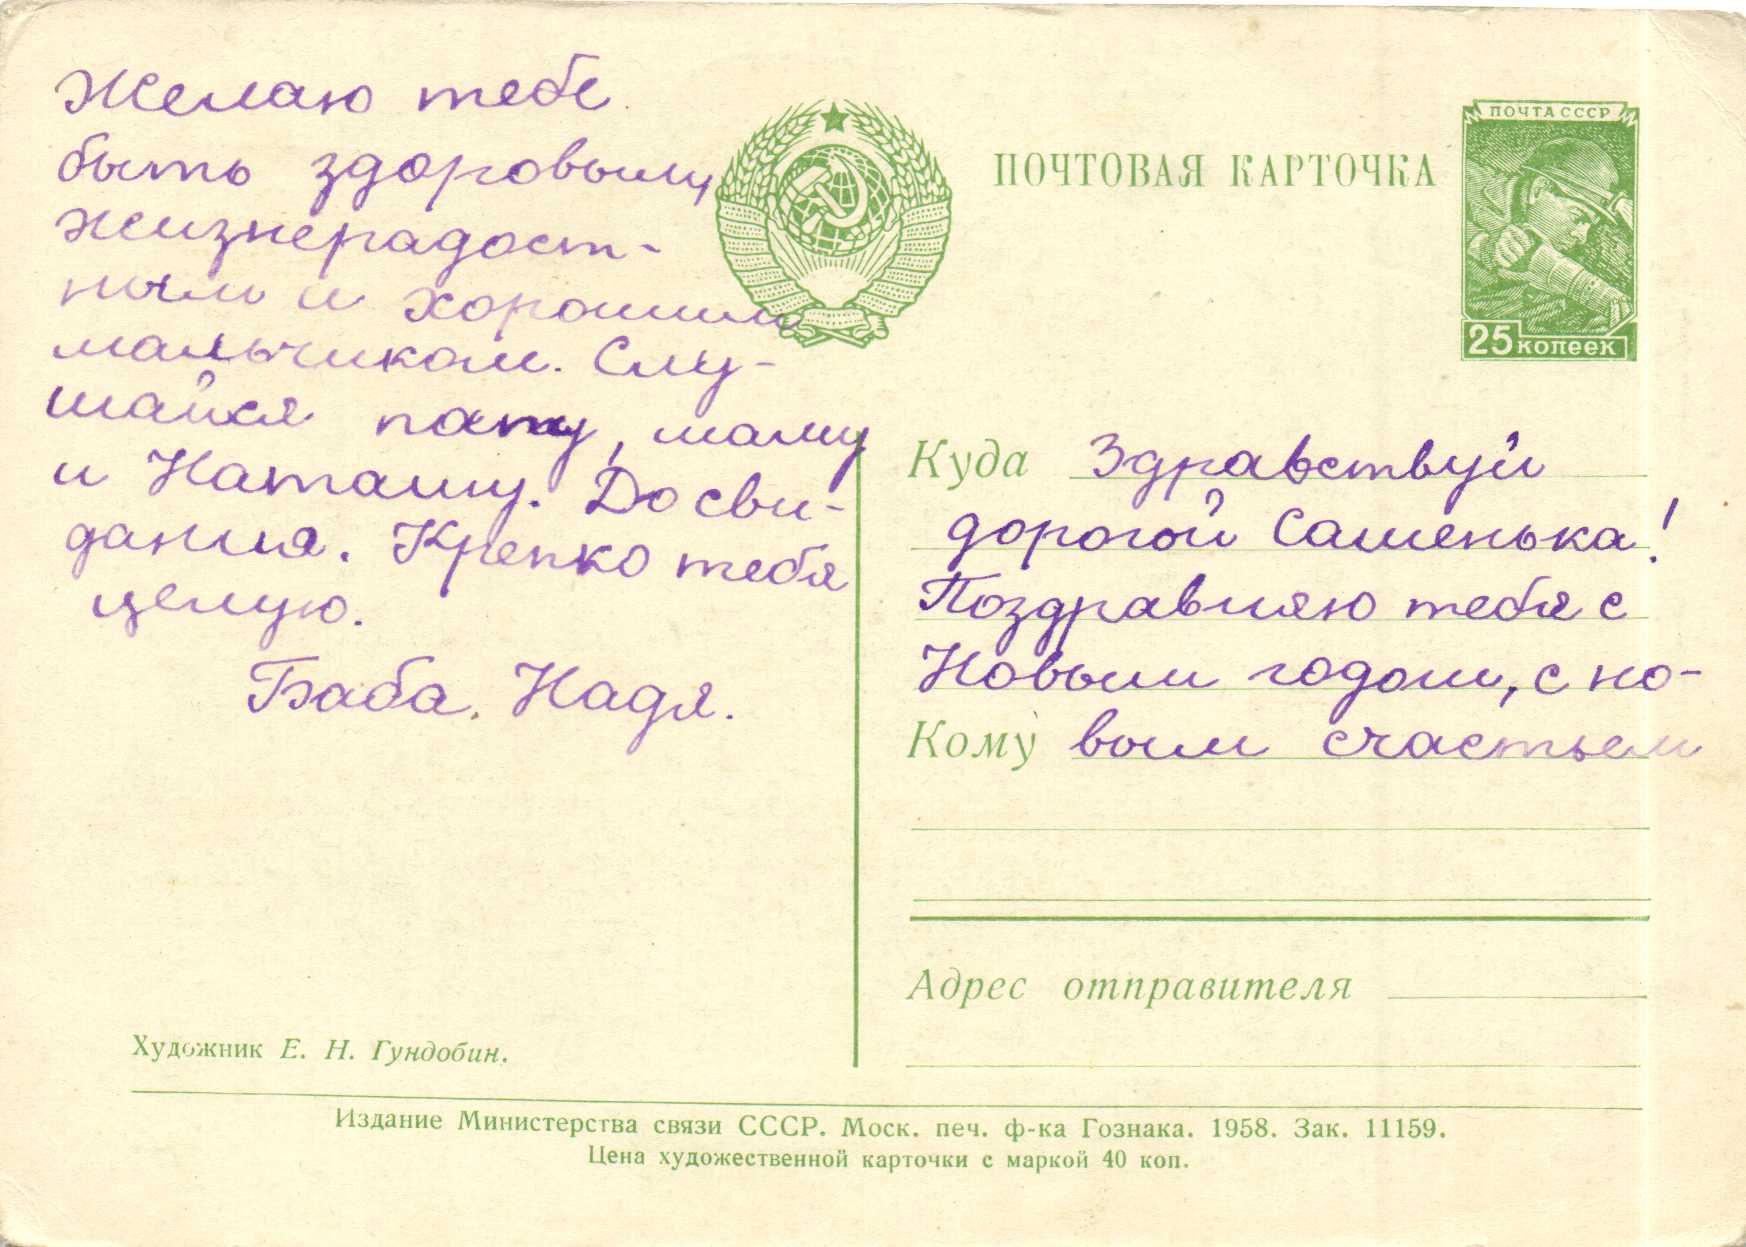 Желаю тебе
быть здоровым,
жизнерадост-
ным и хорошим
мальчиком. Слу-
шайся папу, маму
и Наташу. До сви-
дания. Крепко тебя
целую.
Баба Надя.
ПОЧТОВАЯ КАРТОЧКА
ПОЧТА СССР
25 копеек
Куда Здравствуй
дорогой Сашенька!
Поздравляю тебя с
Новым годом, с но-
Кому вым счастьем
Адрес отправителя
Художник Е. Н. Гундобин.
Издание Министерства связи СССР. Моск. печ. ф-ка Гознака. 1958. Зак. 11159.
Цена художественной карточки с маркой 40 коп.